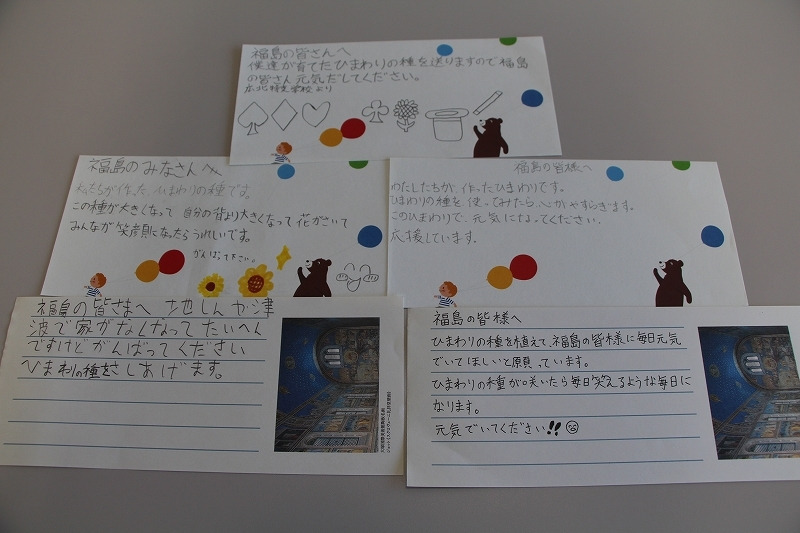 福島の皆さんへ
僕達が育てたひまわりの種を送りますので福島
の皆さん元気だしてください。
広北特支学校より
福島のみなさんへ
私たちが作った、ひまわりの種です。
この種が大きくなって 自分の背より大きくなって花がさいて
みんなが笑顔になったらうれしいです。
がんばって下さい。
福島の皆様へ
わたしたちが、作ったひまわりです。
ひまわりの種を使ってみたら、心がやすらぎます。
このひまわりで、元気になってください
応援しています。
福島の皆さまへ 地しんや津
波で家がなくなってたいへん
ですけどがんばってください
ひまわりの種をさしあげます。
福島の皆様へ
ひまわりの種を植えて、福島の皆様に毎日元気
でいてほしいと願っています。
ひまわりの種が咲いたら毎日笑えるような毎日に
なります。
元気でいてください!!